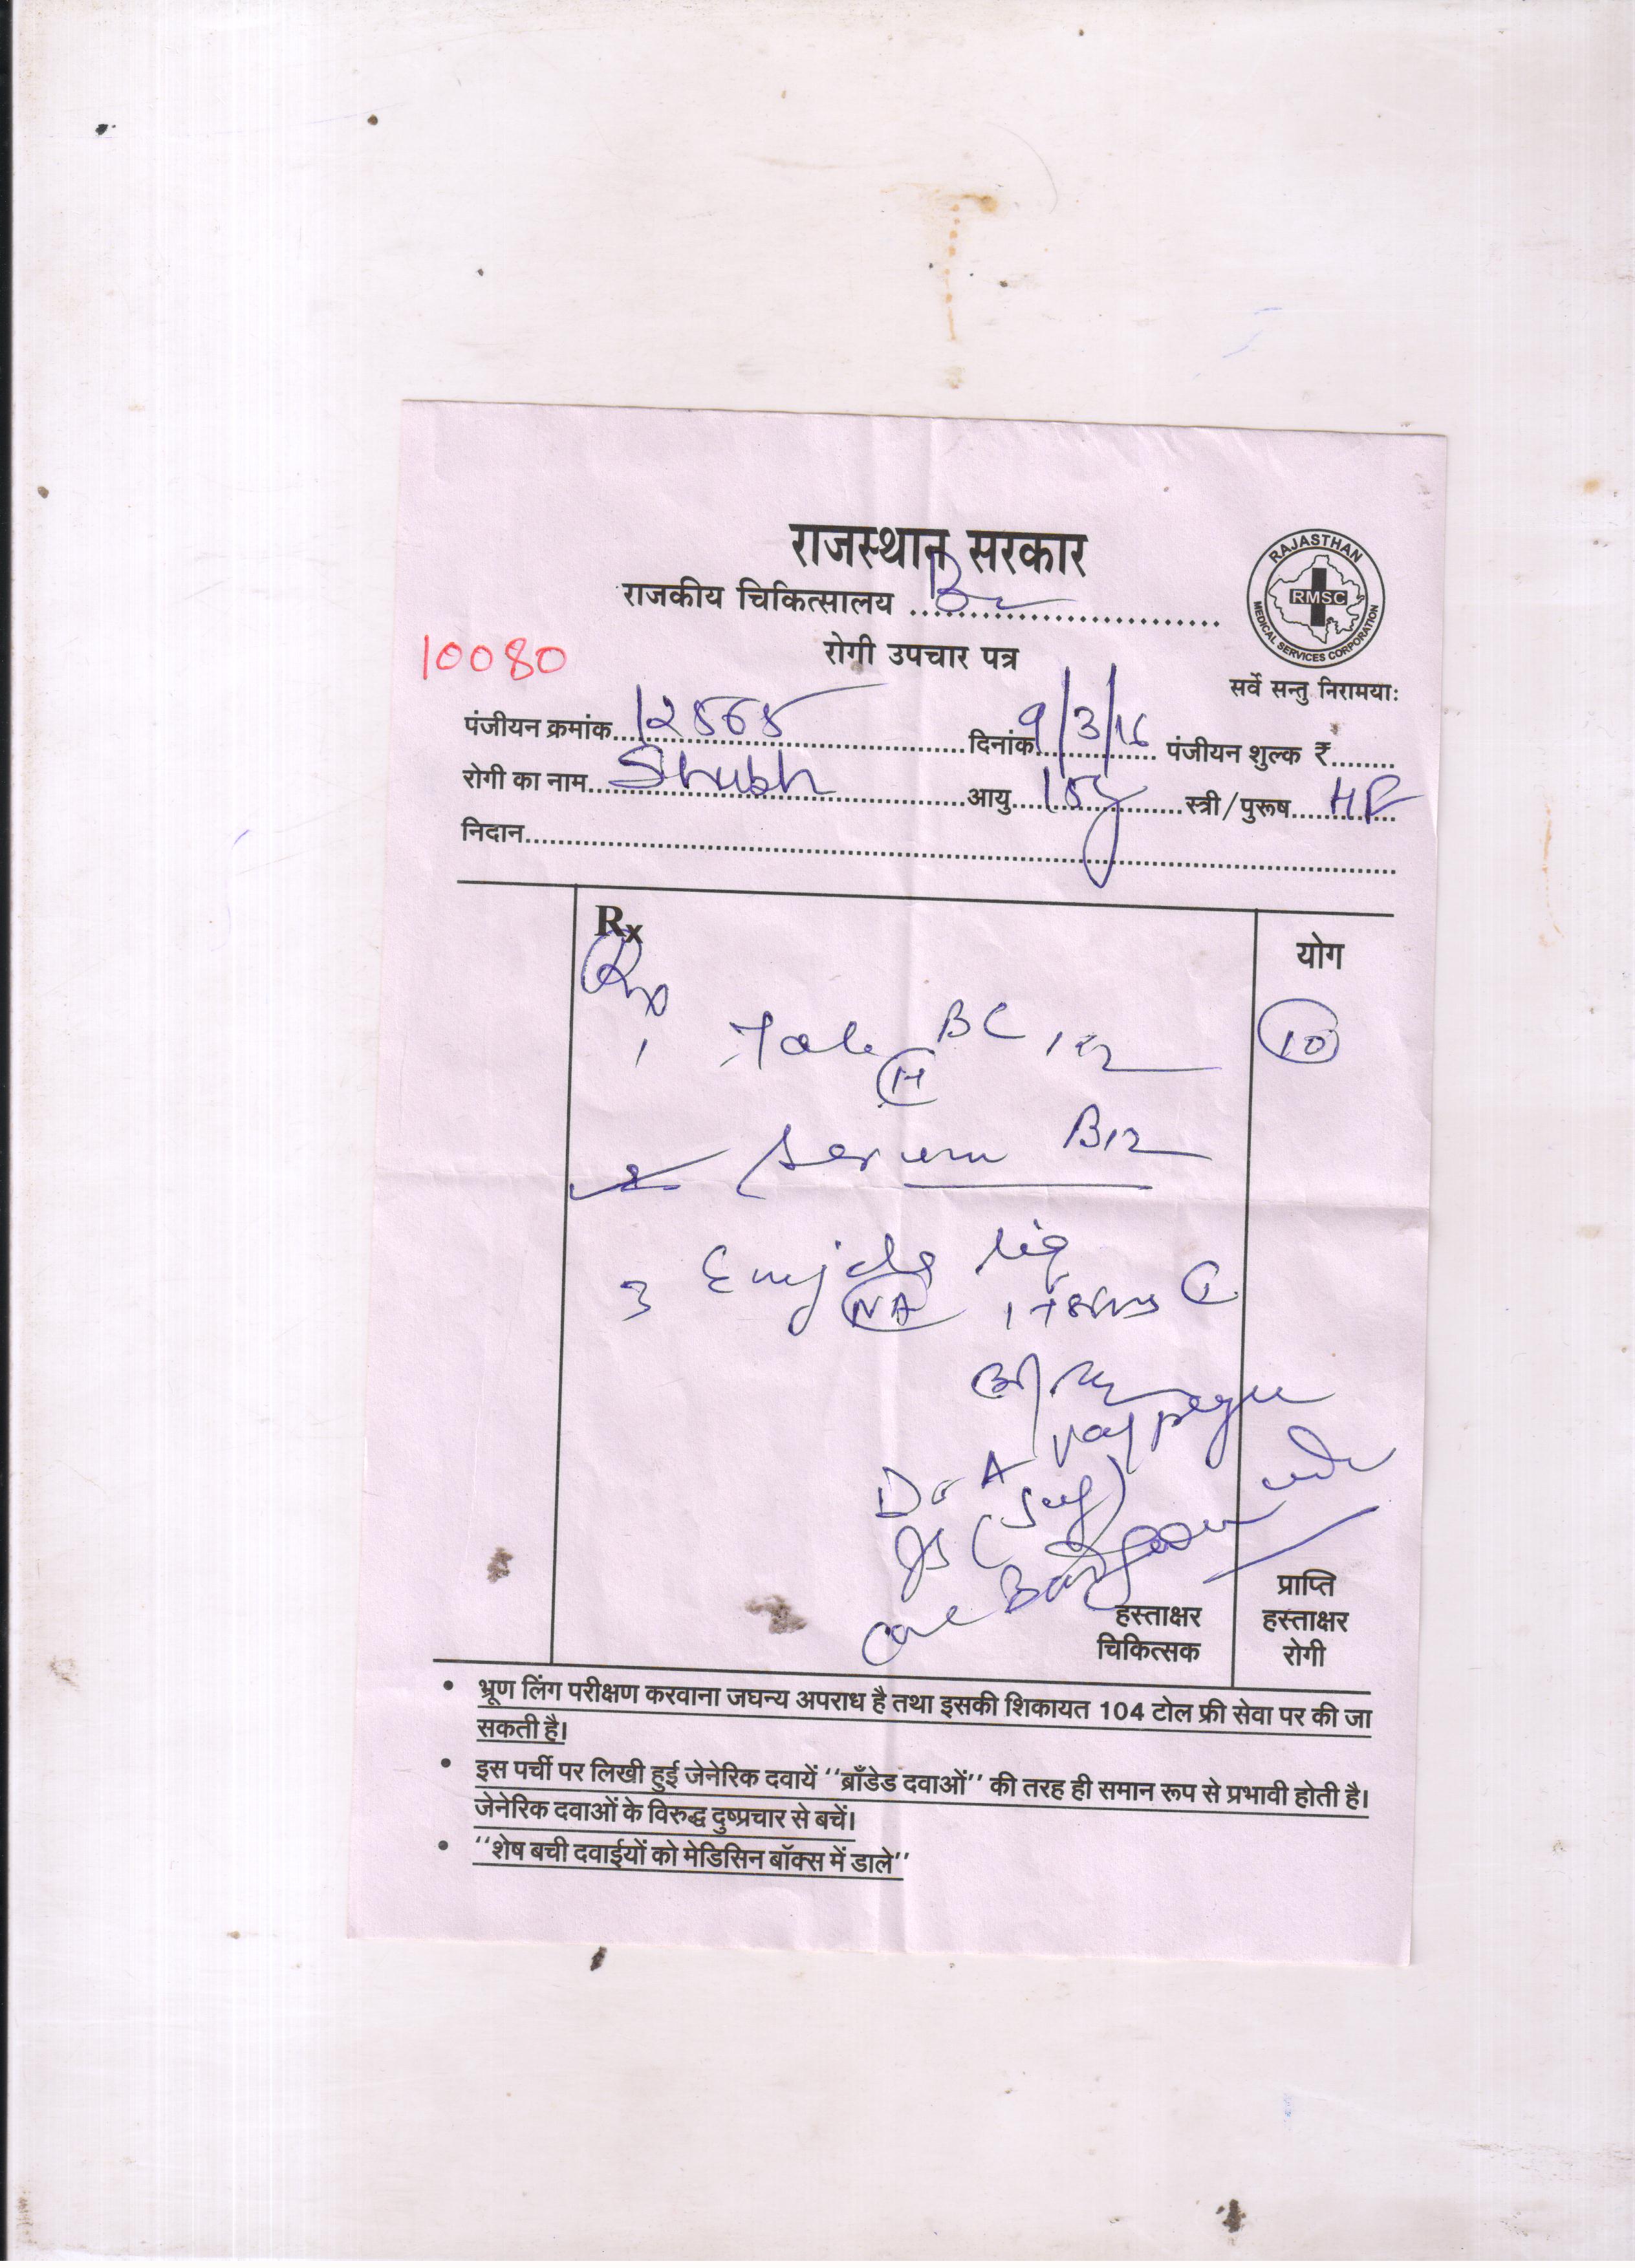 राजस्थान सरकार
राजकीय चिकित्सालय ..............................
RAJASTHAN
RMSC
MEDICAL SERVICES CORPORATION
10080
रोगी उपचार पत्र
सर्वे सन्तु निरामयाः
पंजीयन क्रमांक 12568 दिनांक 9/3/16 पंजीयन शुल्क ₹........
रोगी का नाम Shubh आयु 15y स्त्री/पुरूष
निदान
Rx
योग
1 Tab BC 10
H
2 Serum B12
3 liq
NA
Dr A
प्राप्ति
हस्ताक्षर हस्ताक्षर
चिकित्सक रोगी
• भ्रूण लिंग परीक्षण करवाना जघन्य अपराध है तथा इसकी शिकायत 104 टोल फ्री सेवा पर की जा
सकती है।
• इस पर्ची पर लिखी हुई जेनेरिक दवायें ‘‘ब्राँडेड दवाओं’’ की तरह ही समान रूप से प्रभावी होती है।
जेनेरिक दवाओं के विरुद्ध दुष्प्रचार से बचें।
• ‘‘शेष बची दवाईयों को मेडिसिन बॉक्स में डाले’’